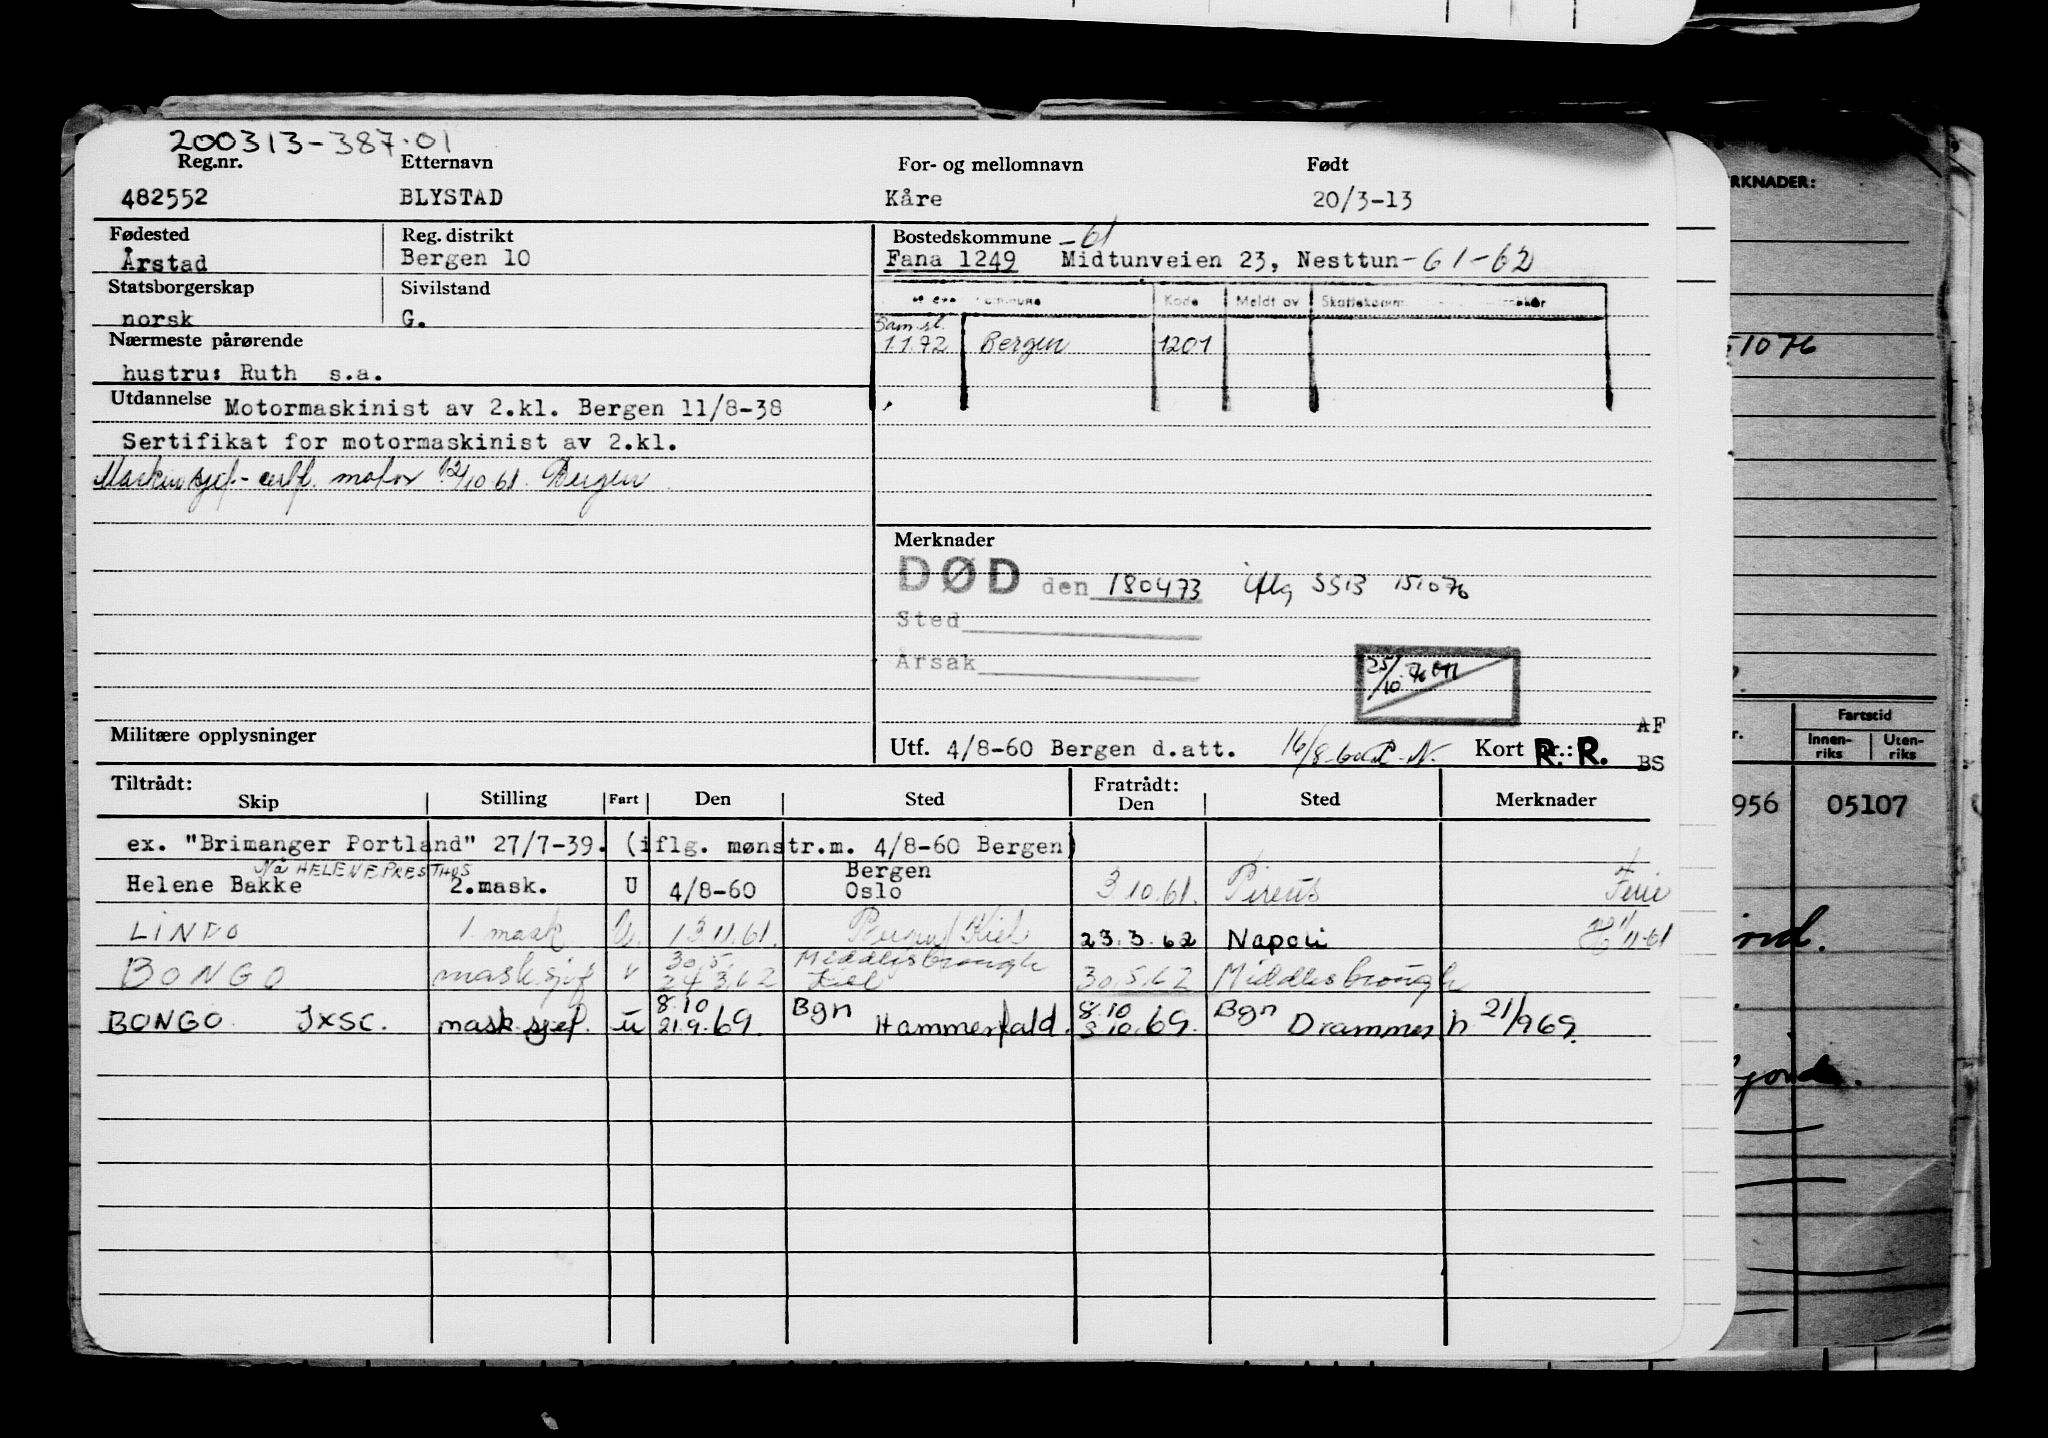 200313-387.01
Reg.nr. Etternavn For- og mellomnavn Født
482552 BLYSTAD Kåre 20/3-13
Fødested Reg. distrikt Bostedskommune -61
Årstad Bergen 10 Fana 1249 Midtunveien 23, Nesttun -61-62
Statsborgerskap Sivilstand
norsk G.
Kode Meldt av
Nærmeste pårørende
1.1.72 Bergen 1201
hustru: Ruth s.a.
Utdannelse Motormaskinist av 2.kl. Bergen 11/8-38
Sertifikat for motormaskinist av 2.kl.
Maskinsjef- cert. motor 12/10 61. Bergen
Merknader
DØD den 180473 iflg SSB 151076
Sted
Årsak
25/10-76
AF
Militære opplysninger
Utf. 4/8-60 Bergen d.att. 16/8-60 Kort nr.: R.R.
BS
Tiltrådt: Fratrådt:
Skip Stilling Fart Den Sted Den Sted Merknader
ex. "Brimanger Portland" 27/7-39. (iflg. mønstr.m. 4/8-60 Bergen)
Nå HELENE PRESTHUS
Helene Bakke 2.mask. U 4/8-60 Bergen Oslo 3.10.61. Pireus Ferie
LINDO 1. mask U. 13.11.61. Bergen/Kiel 23.3.62 Napoli 1/11-61
BONGO mask.sjef v 30.5. 24 3.62 Middlesbrough Kiel 30.5.62 Middlesbrough
BONGO JXSC. mask.sjef. u 8.10 21.9.69. Bgn Hammerfald. 8.10 3.10.69. Bgn Drammen h 21/969.
RKNADER:
51076
Fartstid
Innen-riks Uten-riks
956 05107